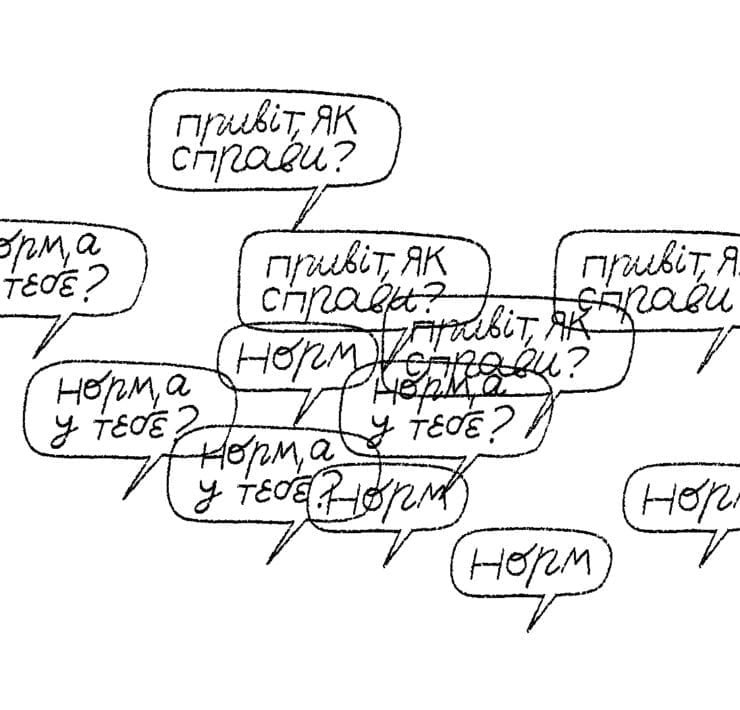 привіт, як
справи?
орм, а
тебе?
привіт, як
справи?
привіт, я
справи
привіт, як
справи?
норм
норм, а
у тебе?
норм, а
у тебе?
норм, а
у тебе?
норм
норм
норм